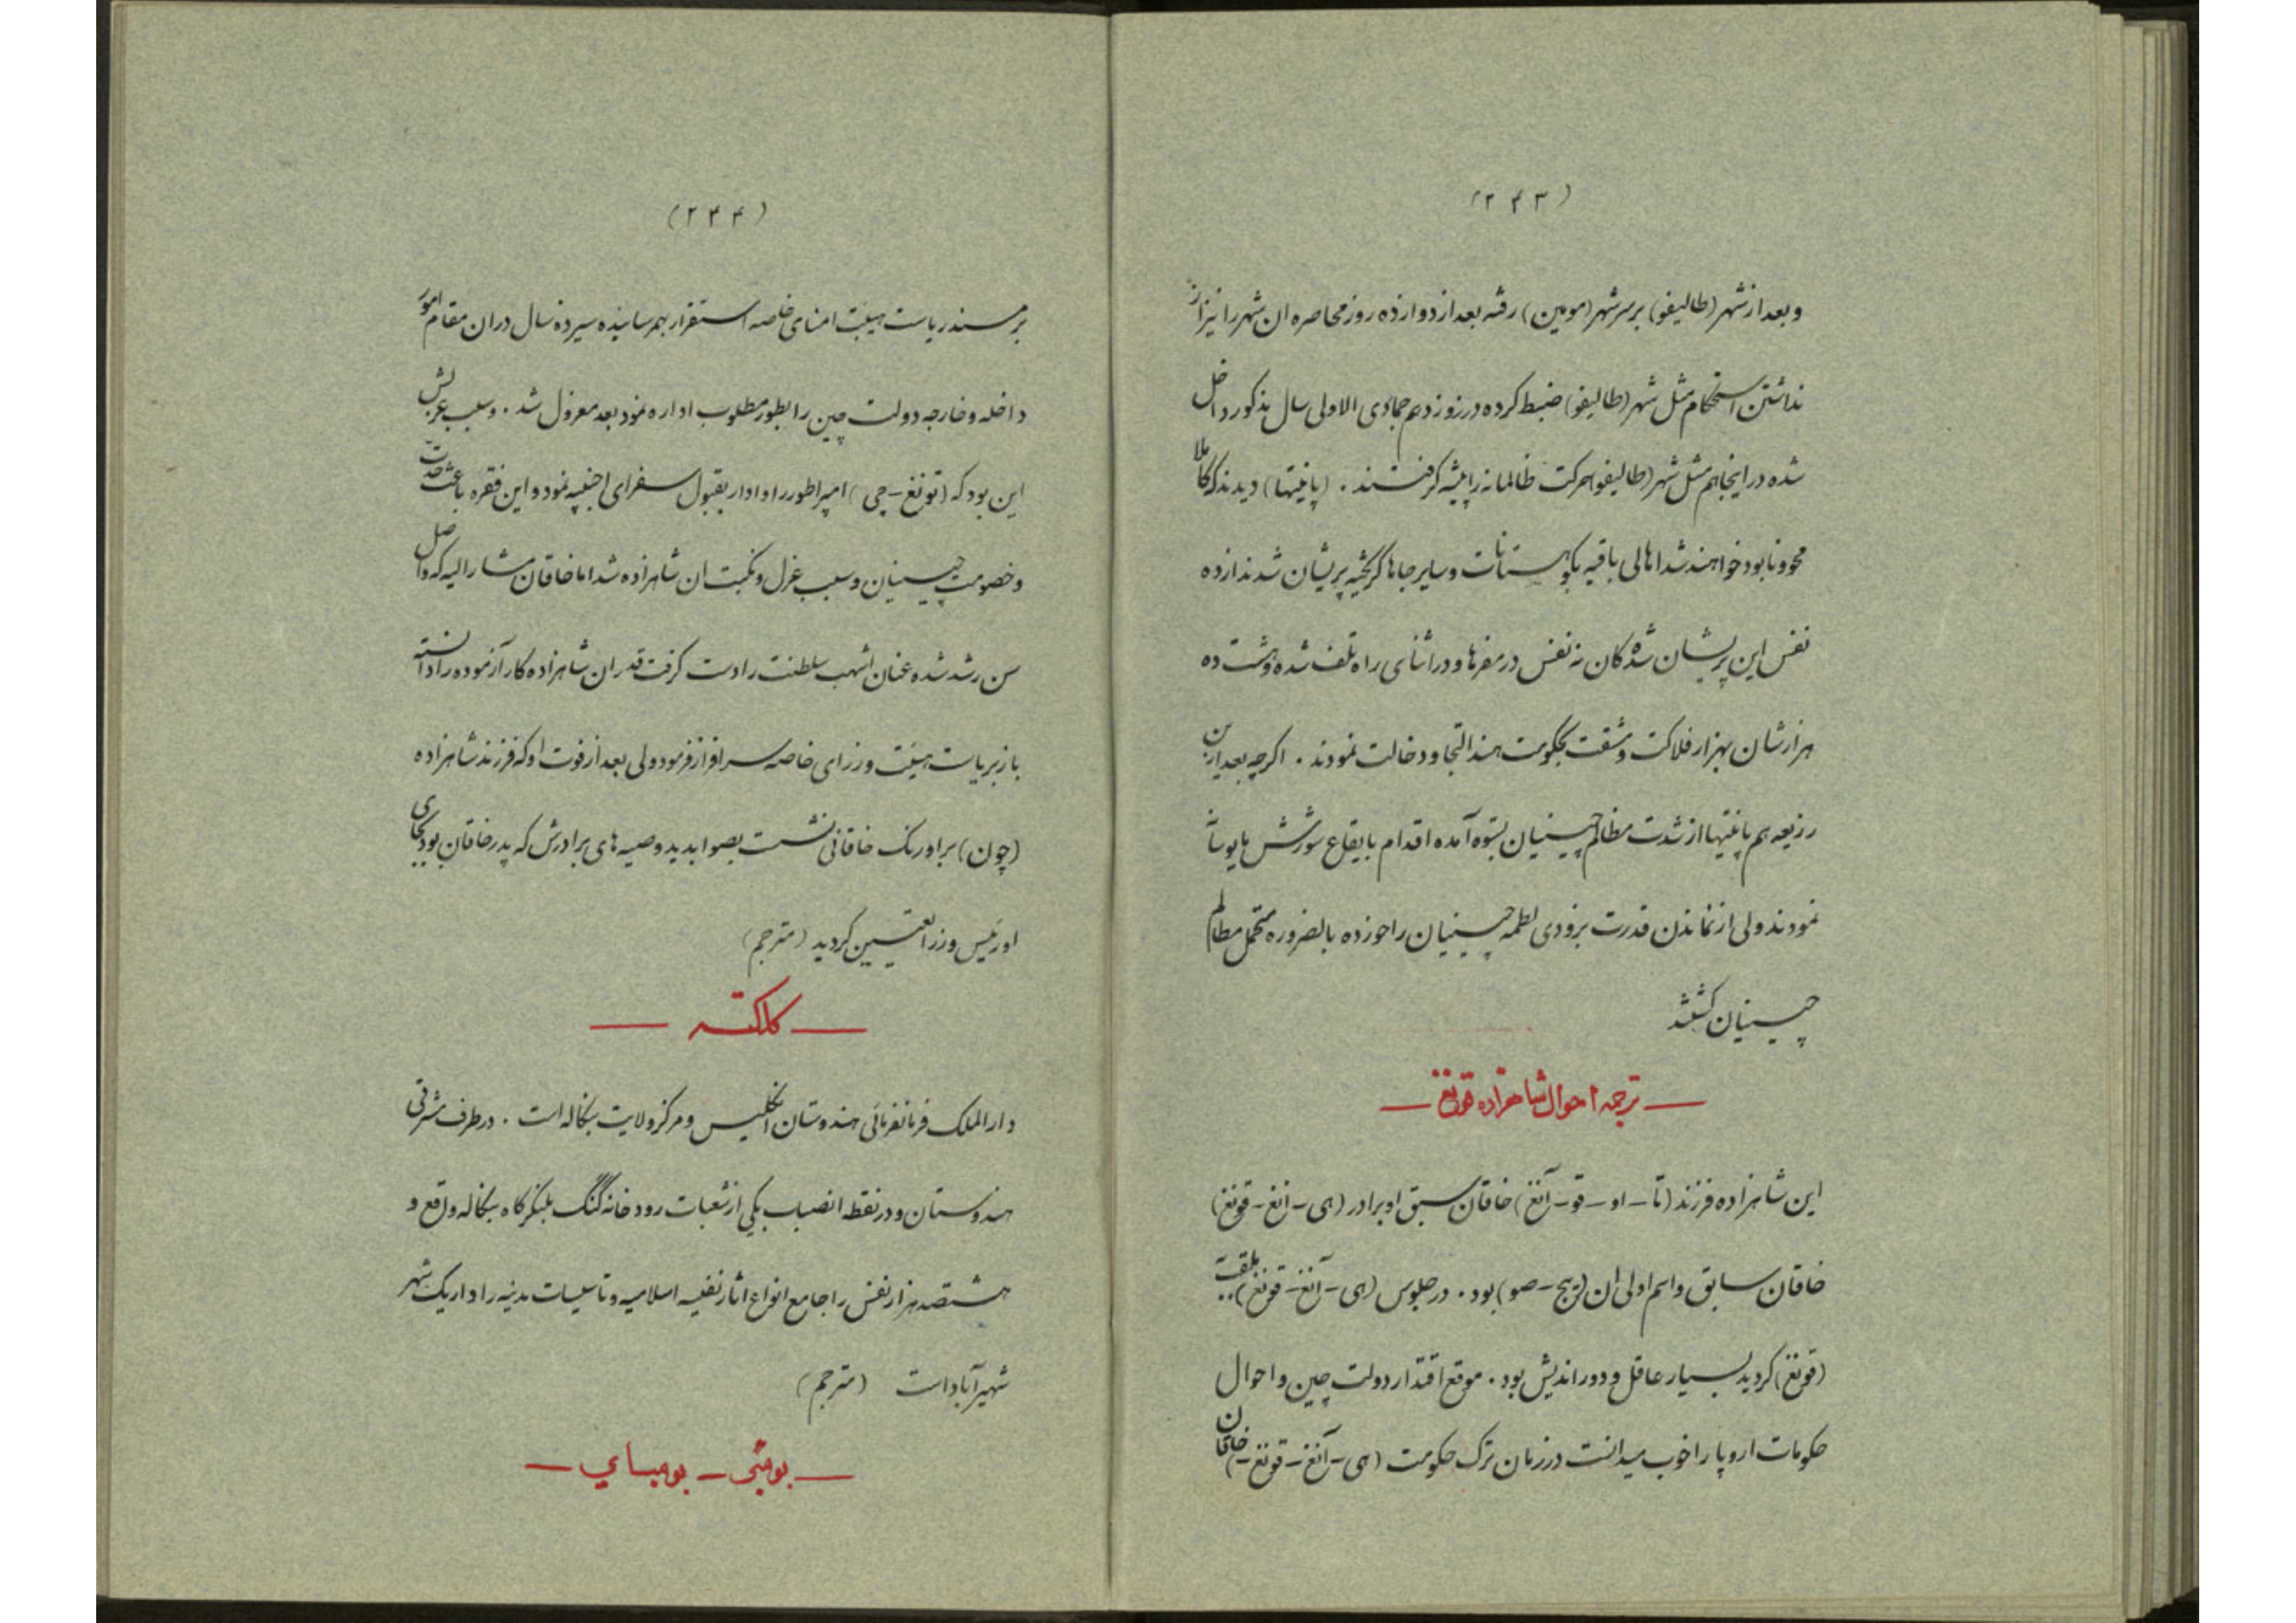 (۲۴۳)
و بعد از شهر (طالیفو) بر سر شهر (مومین) رفته بعد از دوازده روز محاصره ان شهر را نیز از
نداشتن استحکام مثل شهر (طالیفو) ضبط کرده در روز دهم جمادی الاولی سال مذکور داخل
شده در اینجا هم مثل شهر (طالیفو) حرکت ظالمانه را پیشه گرفتند . (پانتیها) دیدند که کاملا
محو و نابود خواهند شد اهالی باقیه بکوهستانات و سایر جاها گریخته پریشان شدند از ده
نفس این پریشان شدگان نه نفس در مفرها و در اثنای راه تلف شده و هشت ده
هزارشان بهزار فلاکت و مشقت بحکومت هند التجا و دخالت نمودند . اگرچه بعد از این
رزیعه هم پانتیها از شدت مظالم چینیان بستوه آمده اقدام بایقاع شورش
نمودند ولی از نماندن قدرت بزودی لطمه چینیان را خورده بالضروره متحمل مظالم
چینیان گشتند
— ترجمه احوال شاهزاده قونغ —
این شاهزاده فرزند (تا - او - قو - آنغ) خاقان اسبق او برادر (هی - انغ - قونغ)
خاقان سابق و اسم اولی ان بود . در جلوس (هی - آنغ - قونغ) ملقب به
(قونغ) گردید بسیار عاقل و دور اندیش بود . موقع اقتدار دولت چین و احوال
حکومات اروپا را خوب میدانست در زمان ترک حکومت (هی - آنغ - قونغ -) خاقان
(۲۴۴)
بر مسند ریاست هیئت امنای خاصه استقرار بهم رسانیده سیزده سال در ان مقام امور
داخله و خارجه دولت چین را بطور مطلوب اداره نمود بعد معزول شد . و سبب عزلش
این بود که (تونغ - چی) امپراطور را وادار بقبول سفرای اجنبیه نمود و این فقره باعث حدت
و خصومت چینیان و سبب عزل و نکبت ان شاهزاده شد اما خاقان مشار الیه که واصل
سن رشد شده عنان اشهب سلطنت را دست گرفت قدر ان شاهزاده کار آزموده را دانسته
باز بریاست هیئت وزرای خاصه سرافراز فرمود ولی بعد از فوت او که فرزند شاهزاده
(چون) بر اورنگ خاقانی نشست بصوابدید وصیه های برادرش که پدر خاقان بود بجای
او رئیس وزرا تعیین گردید (مترجم)
— کلکته —
دار الملک فرمانفرمائی هندوستان انگلیس و مرکز ولایت بنگاله است . در طرف شرقی
هندوستان و در نقطه انصباب یکی از شعبات رودخانه گنگ بلنگرگاه بنگاله واقع و
هشتصد هزار نفس را جامع انواع اثار نفیسه اسلامیه و تاسیسات مدنیه را دارا یک شهر
شهیر آباد است (مترجم)
— بومبی — بومبای —